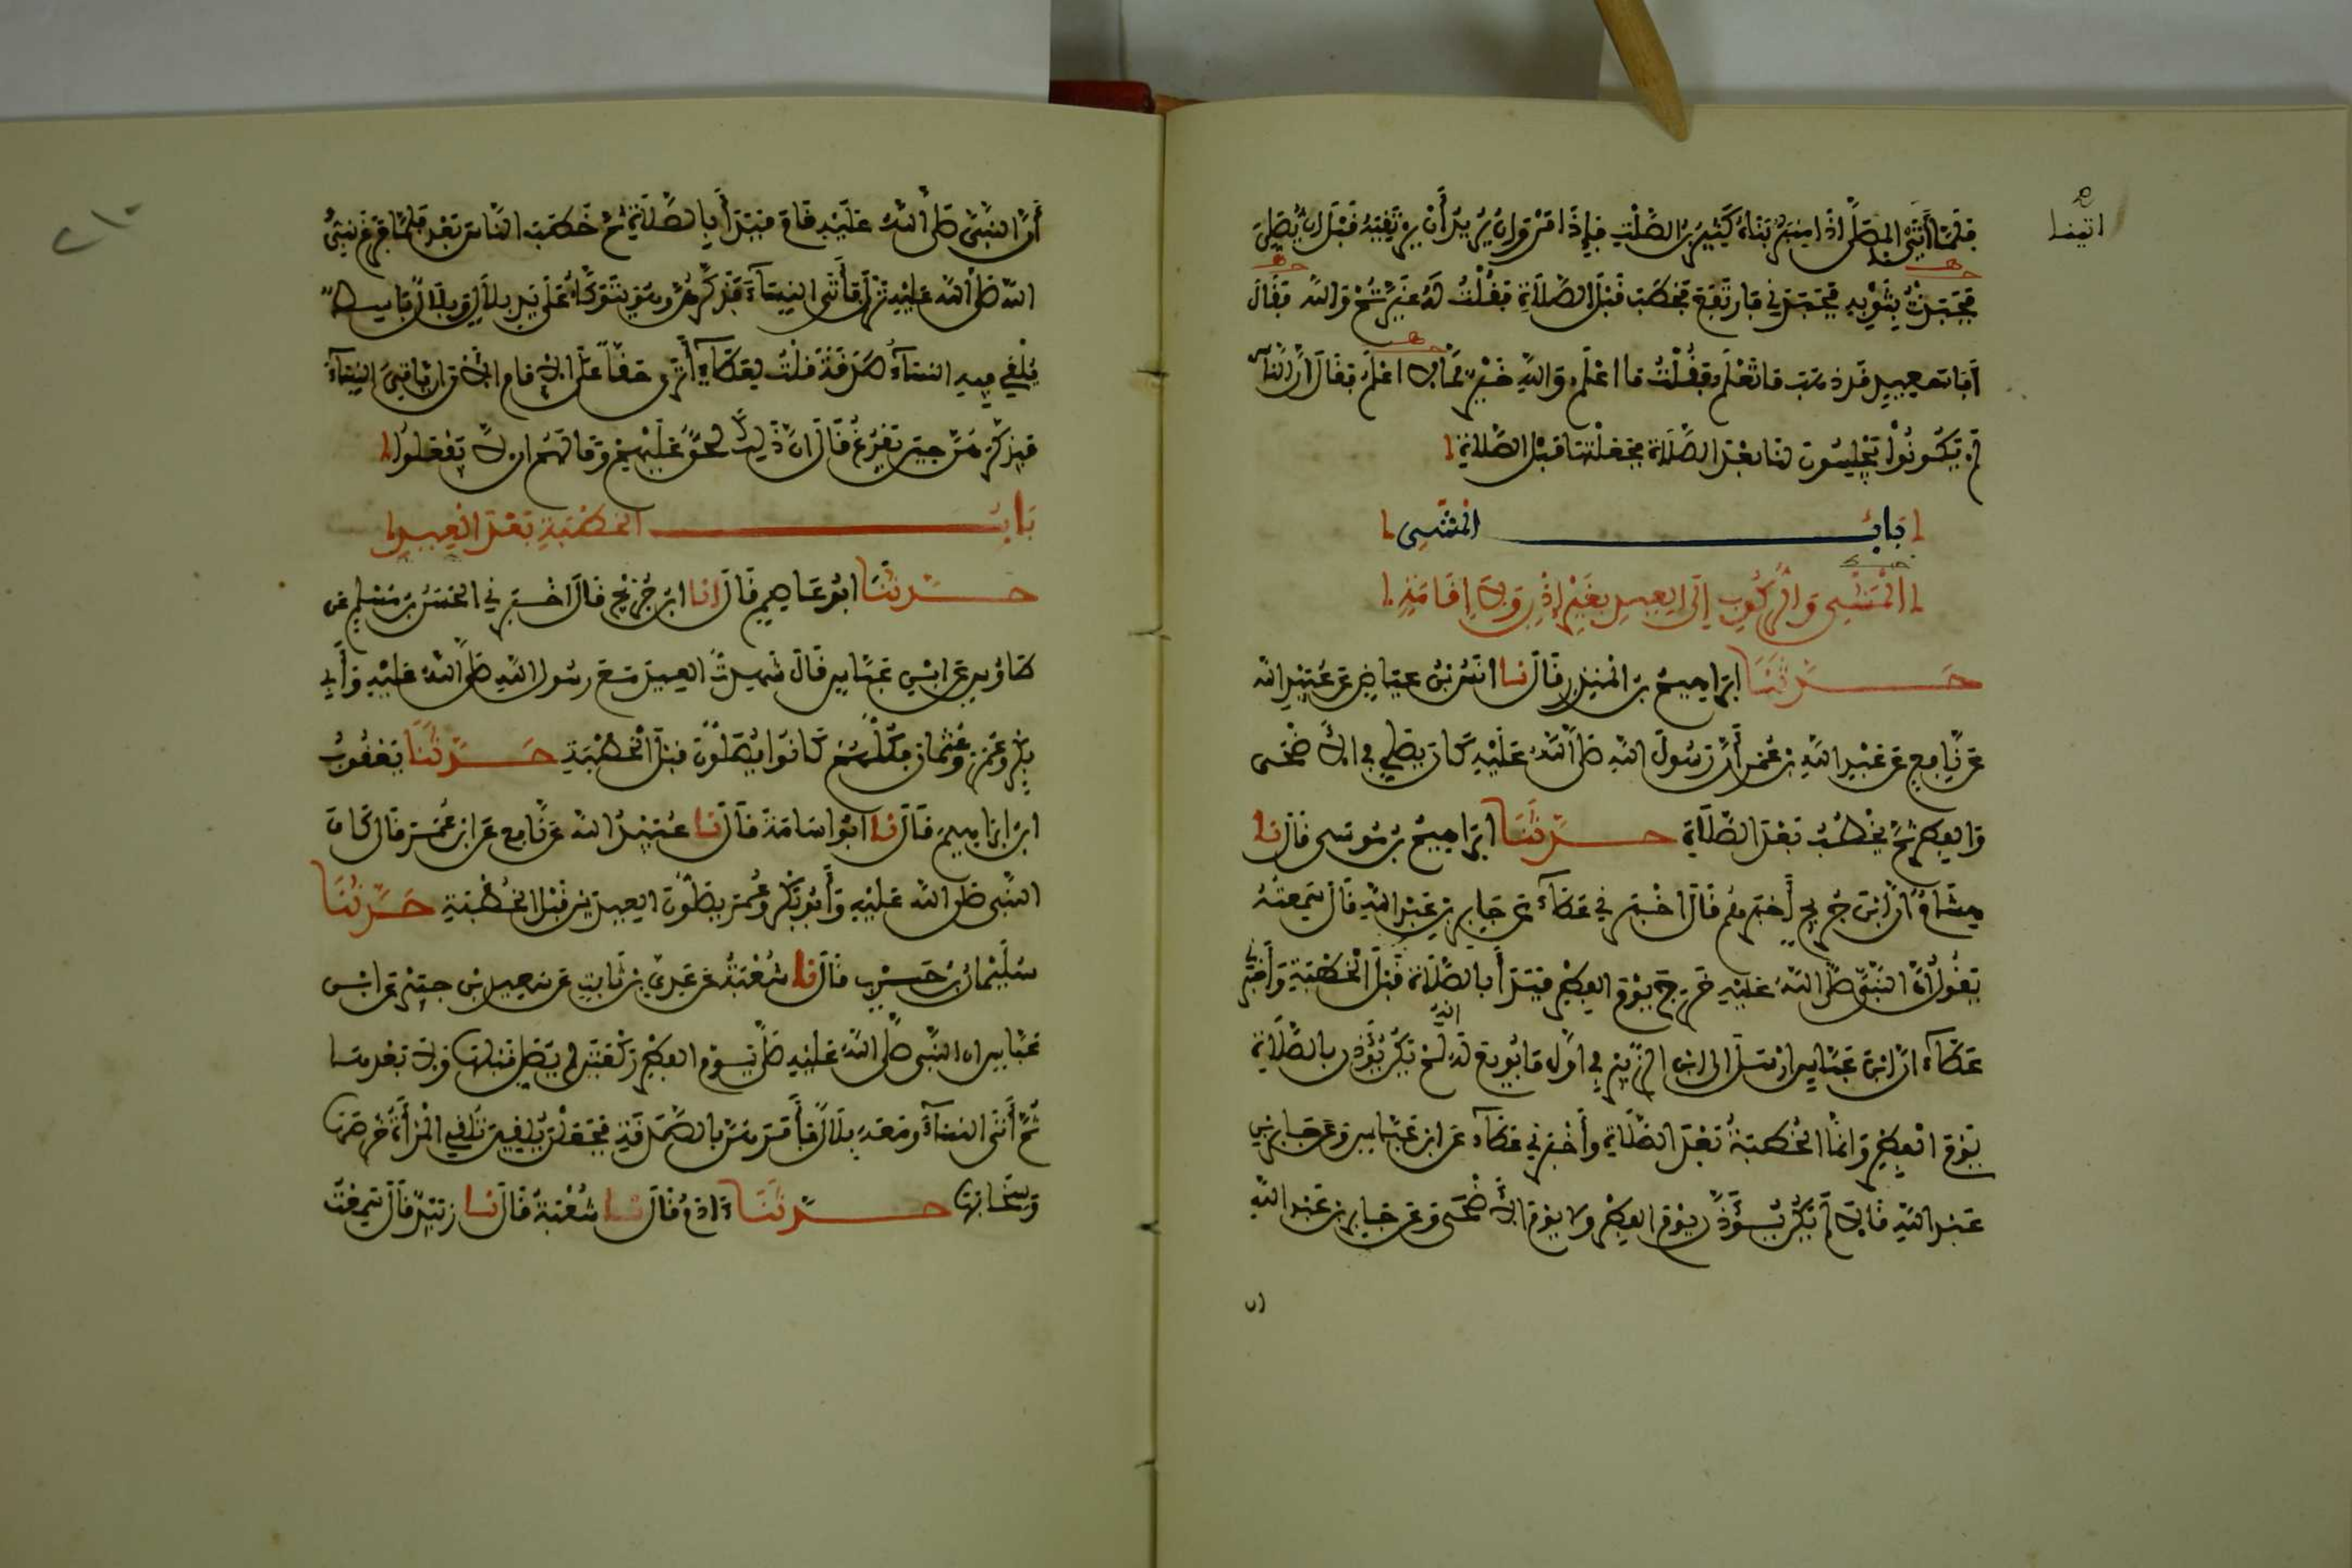 اتينا
فلما أتى المصلى اذا منبر بناه كثير بن الصلت فإذا مروان يريد أن يرتقيه قبل ان يصلي
فجبذت بثوبه فجبذني فارتفع فخطب قبل الصلاة فقلت له غيرتم والله فقال
أبا سعيد قد ذهب ما تعلم فقلت ما اعلم والله خير مما لا اعلم فقال ان الناس
لم يكونوا يجلسون لنا بعد الصلاة فجعلتها قبل الصلاة
باب المشي
المشي والركوب إلى العيد بغير اذن ولا إقامة
حدثنا ابراهيم بن المنذر قال نا انس بن عياض عن عبيد الله
عن نافع عن عبد الله بن عمر أن رسول الله صلى الله عليه كان يصلي في الاضحى
والفطر ثم يخطب بعد الصلاة حدثنا ابراهيم بن موسى قال نا
هشام ان ابن جريج أخبرهم قال اخبرني عطاء عن جابر بن عبد الله قال سمعته
يقول ان النبي صلى الله عليه خرج يوم الفطر فبدأ بالصلاة قبل الخطبة وأخبرني
عطاء ان ابن عباس ارسل الى ابن الزبير في اول ما بويع له انه لم يكن يؤذن بالصلاة
يوم الفطر وانما الخطبة بعد الصلاة وأخبرني عطاء عن ابن عباس وعن جابر بن
عبد الله قالا لم يكن يؤذن يوم الفطر ولا يوم الاضحى وعن جابر بن عبد الله
أن النبي صلى الله عليه قام فبدأ بالصلاة ثم خطب الناس بعد فلما فرغ نبي
الله صلى الله عليه نزل فأتى النساء فذكرهن وهو يتوكأ على يد بلال وبلال باسط
يلقي فيه النساء صدقة قلت لعطاء أترى حقا على الامام الان ان ياتي النساء
فيذكرهن حين يفرغ قال ان ذلك لحق عليهم وما لهم ان لا يفعلوا
باب الخطبة بعد العيد
حدثنا ابو عاصم قال انا ابن جريج قال اخبرني الحسن بن مسلم عن
طاوس عن ابن عباس قال شهدت العيد مع رسول الله صلى الله عليه وأبي
بكر وعمر وعثمان فكلهم كانوا يصلون قبل الخطبة حدثنا يعقوب
ابن ابراهيم قال نا ابو اسامة قال نا عبيد الله عن نافع عن ابن عمر قال كان
النبي صلى الله عليه وأبو بكر وعمر يصلون العيدين قبل الخطبة حدثنا
سليمان بن حرب قال نا شعبة عن عدي بن ثابت عن سعيد بن جبير عن ابن
عباس ان النبي صلى الله عليه صلى يوم الفطر ركعتين لم يصل قبلها ولا بعدها
ثم أتى النساء ومعه بلال فأمرهن بالصدقة فجعلن يلقين تلقي المرأة خرصها
وسخابها حدثنا آدم قال نا شعبة قال نا زبيد قال سمعت